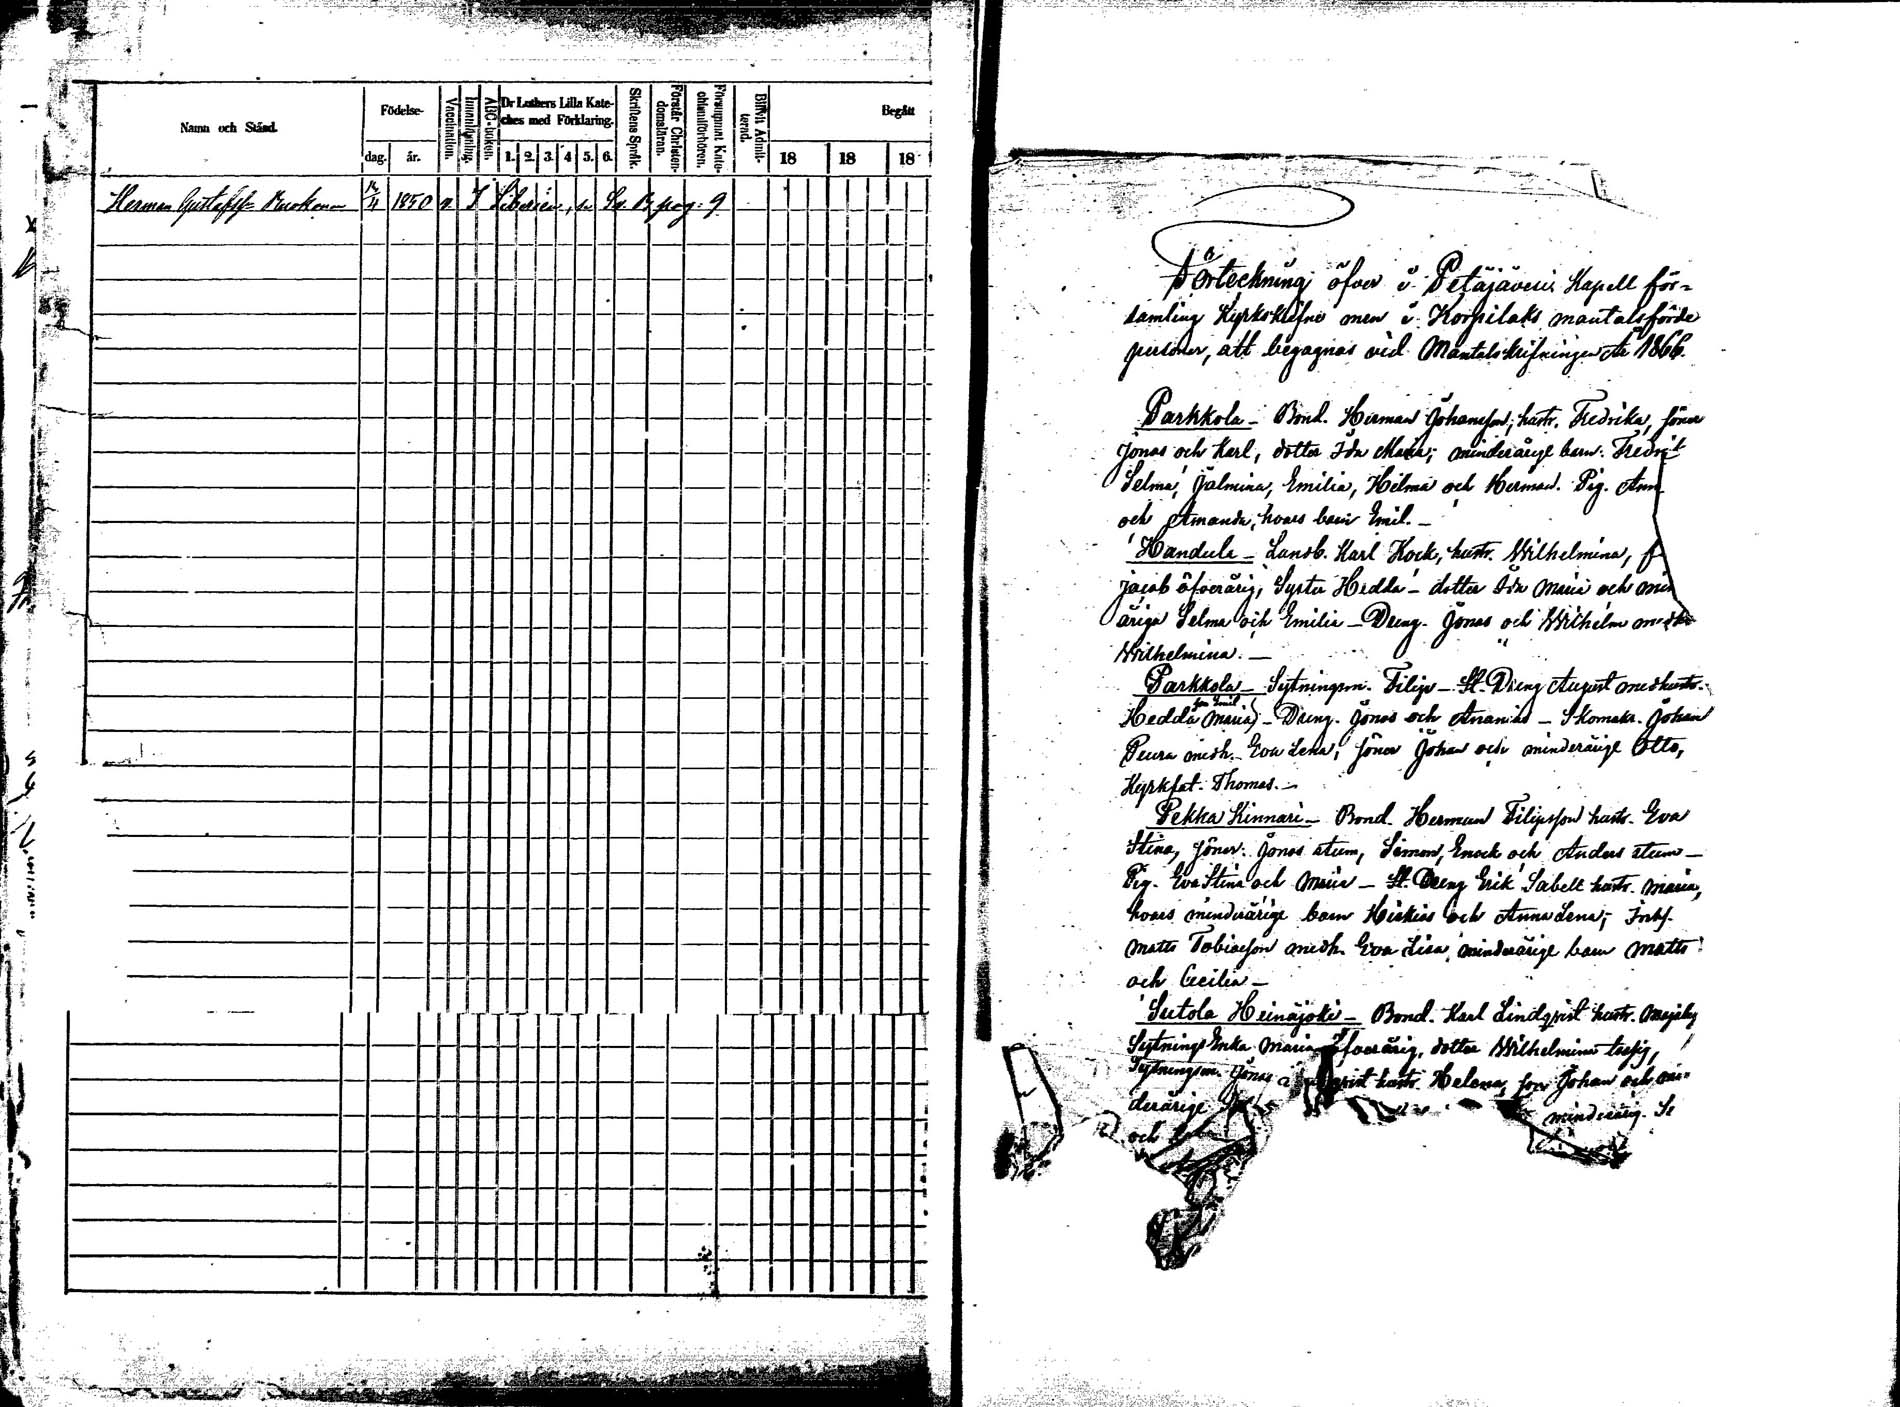 Namn och Stånd.
Födelse-
dag. år.
Vaccination.
Innanläsning.
ABC-boken.
Dr Luthers Lilla Kate-
ches med Förklaring.
1. 2. 3. 4 5. 6.
Skriftens Språk.
Förstår Christen-
domsläran.
Försummat Kate-
chismiförhören.
Blifvit Admit-
terad.
Begått
18 18 18
Herman Gustafss 4 1850 v. I Siberien, se pag. 9
Förteckning öfver i Petäjävesi Kapell för-
samling Kyrkskrifne men i Korpilaks mantalsförde
personer, att begagnas vid Mantalsskrifningen År 1866.
Parkkola – Bond. Herman Johansson, hustr. Fredrika, söner
Jonas och Karl, dotter Ida Maria; minderårige barn. Fredrik
Selma, Jalmina, Emilia, Hilma och Herman. Pig. Ann
och Amanda, hvars barn Emil. –
Handula – Landb. Karl Kock, hustr. Wilhelmina, f
Jacob öfverårig, Syster Hedda – dotter Ida Maria och min
åriga Selma och Emilia – Dreng. Jonas och Wilhelm
Wilhelmina. –
Parkkola – Sytningsm. Filip – St. Dreng August med hustr.
Hedda Maria – Dreng. Jonas och Ananias – Skomakr. Johan
son Emil
Peura medh. Eva Lena, söner Johan och minderårige Otto,
Kyrkfat. Thomas. –
Pekka Kinnari – Bond. Herman Filipsson hustr. Eva
Stina, söner. Jonas stum, Simon, Enock och Anders stum –
Pig. Eva Stina och Maria – St. Dreng Erik Sabell hustr. Maria,
hvars minderårige barn Hiskias och Anna Lena; Inhs.
Matts Tobiasson medh. Eva Lisa, minderårige barn Matts
och Cecilia –
Sutola Heinäjoki – Bond. Karl Lindqvist hustr.
Sytnings Enka Maria öfverårig, dotter Wilhelmina
Sytningsm. Jonas hustr. Helena, son Johan och min-
derårige minderårig.
och